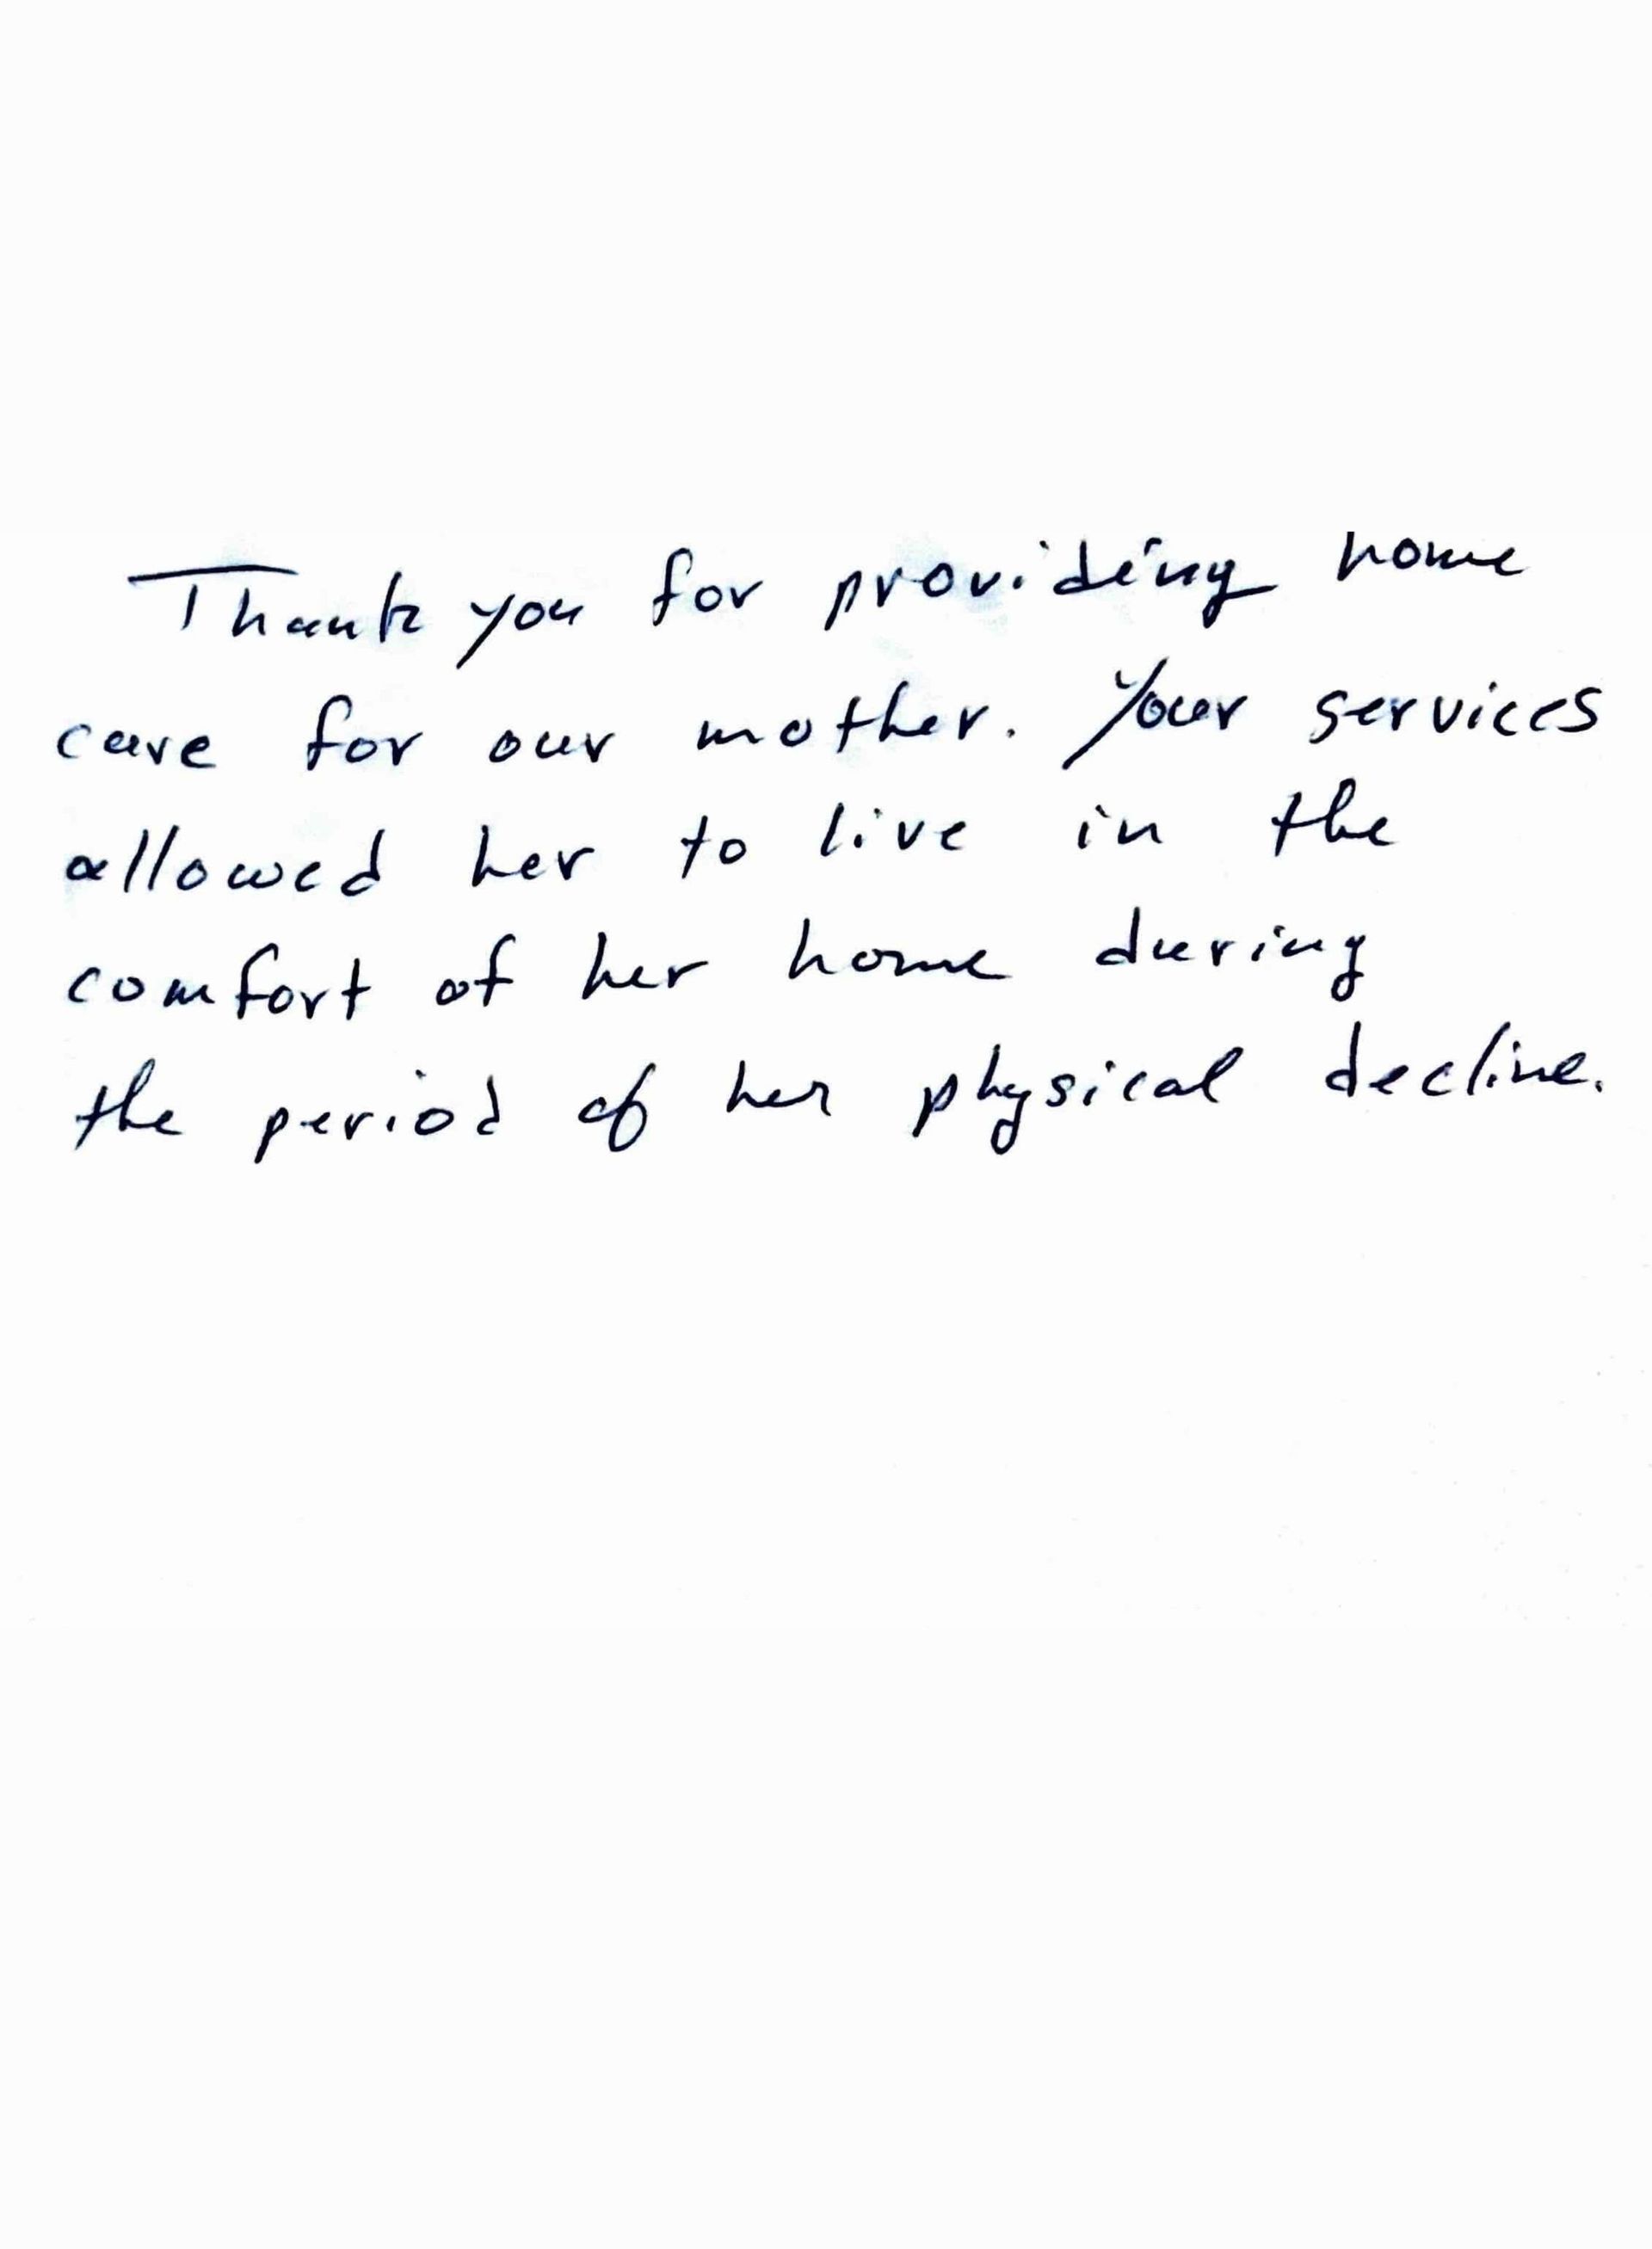 Thank you for providing home
care for our mother. Your services
allowed her to live in the
comfort of her home during
the period of her physical decline.